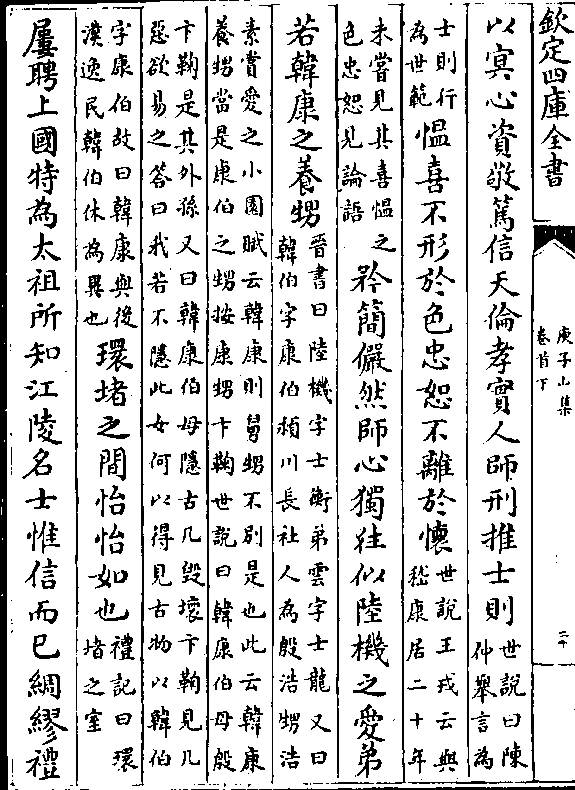 欽定四庫全書
庾子山集
卷首下
二十
以冥心資敬篤信天倫孝實人師刑推士則
世說曰陳
仲舉言為
士則行
為世範
慍喜不形於色忠恕不離於懷
世說王戎云與
嵇康居二十年
未嘗見其喜慍之
色忠恕見論語
矜簡儼然師心獨往似陸機之愛弟
若韓康之養甥
晉書曰陸機字士衡弟雲字士龍又曰
韓伯字康伯潁川長社人為殷浩甥浩
素賞愛之小園賦云韓康則舅甥不別是也此云韓康
養甥當是康伯之甥按康甥卞鞠世說曰韓康伯母殷
卞鞠是其外孫又曰韓康伯母隱古几毀壞卞鞠見几
惡欲易之答曰我若不隱此女何以得見古物以韓伯
字康伯故曰韓康與後
漢逸民韓伯休為異也
環堵之間怡怡如也
禮記曰環
堵之室
屢聘上國特為太祖所知江陵名士惟信而已綢繆禮